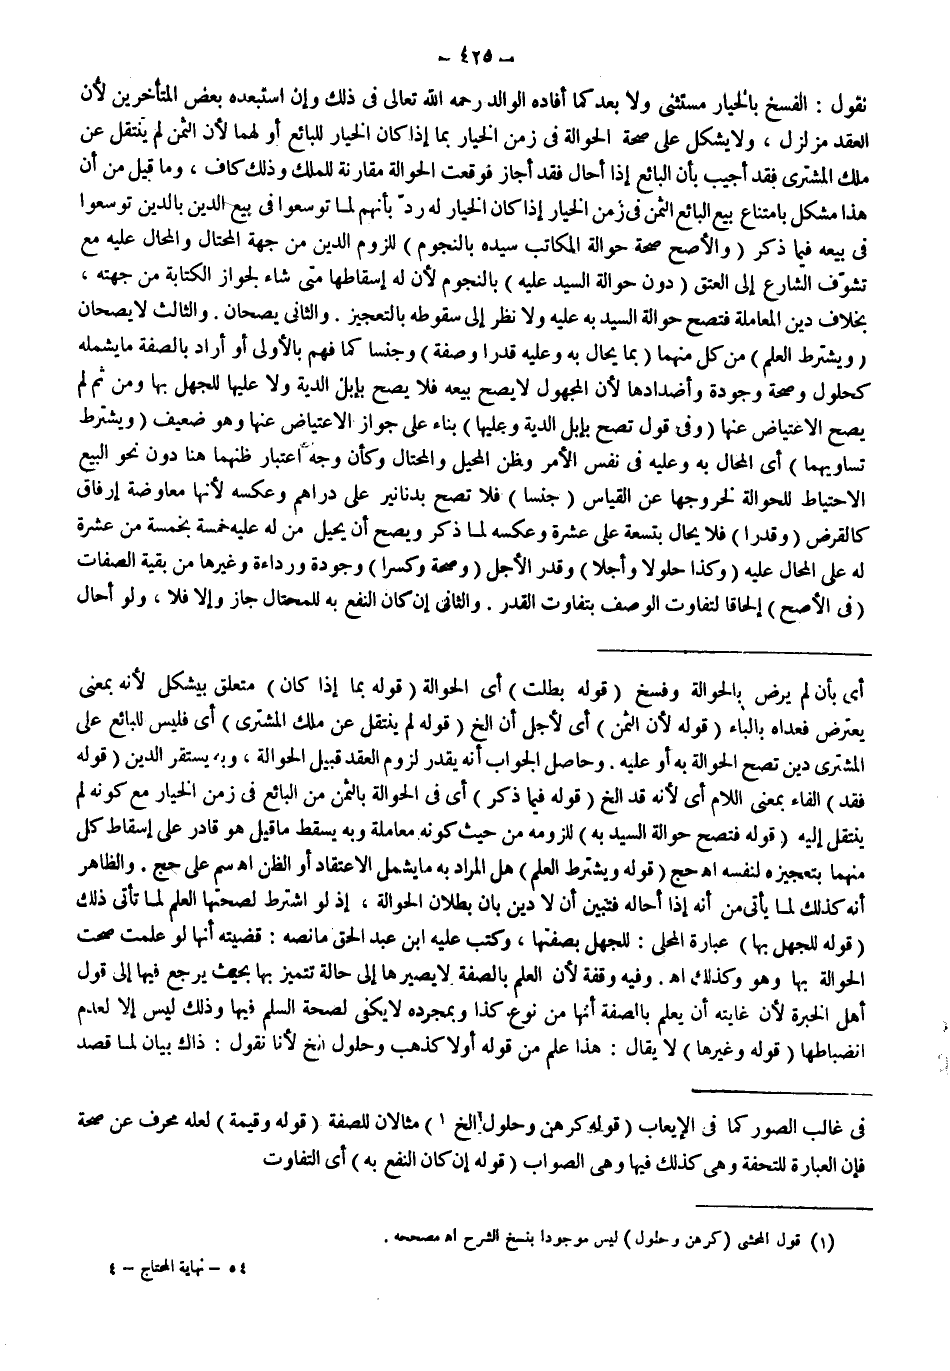 – ٤٢٥ –
نقول : الفسخ بالخيار مستثنى ولا بعد كما أفاده الوالد رحمه الله تعالى فى ذلك وإن استبعده بعض المتأخرين لأن
العقد مزلزل ، ولا يشكل على صحة الحوالة فى زمن الخيار بما إذا كان الخيار للبائع أو لهما لأن الثمن لم ينتقل عن
ملك المشترى فقد أجيب بأن البائع إذا أحال فقد أجاز فوقعت الحوالة مقارنة للملك وذلك كاف ، وما قيل من أن
هذا مشكل بامتناع بيع البائع الثمن فى زمن الخيار إذا كان الخيار له ردّ بأنهم لما توسعوا فى بيع الدين بالدين توسعوا
فى بيعه فيما ذكر ( والأصح صحة حوالة المكاتب سيده بالنجوم ) للزوم الدين من جهة المحتال والمحال عليه مع
تشوّف الشارع إلى العتق ( دون حوالة السيد عليه ) بالنجوم لأن له إسقاطها متى شاء لجواز الكتابة من جهته ،
بخلاف دين المعاملة فتصح حوالة السيد به عليه ولا نظر إلى سقوطه بالتعجيز . والثانى يصحان . والثالث لا يصحان
( ويشترط العلم ) من كل منهما ( بما يحال به وعليه قدرا وصفة ) وجنسا كما فهم بالأولى أو أراد بالصفة مايشمله
كحلول وصحة وجودة وأضدادها لأن المجهول لايصح بيعه فلا يصح بإبل الدية ولا عليها للجهل بها ومن ثم لم
يصح الاعتياض عنها ( وفى قول تصح بإبل الدية وعليها ) بناء على جواز الاعتياض عنها وهو ضعيف ( ويشترط
تساويهما ) أى المحال به وعليه فى نفس الأمر وظن المحيل والمحتال وكأن وجه اعتبار ظنهما هنا دون نحو البيع
الاحتياط للحوالة لخروجها عن القياس ( جنسا ) فلا تصح بدنانير على دراهم وعكسه لأنها معاوضة إرفاق
كالقرض ( وقدرا ) فلا يحال بتسعة على عشرة وعكسه لما ذكر ويصح أن يحيل من له عليه خمسة بخمسة من عشرة
له على المحال عليه ( وكذا حلولا وأجلا ) وقدر الأجل ( وصحة وكسرا ) وجودة ورداءة وغيرها من بقية الصفات
( فى الأصح ) إلحاقا لتفاوت الوصف بتفاوت القدر . والثانى إن كان النفع به للمحتال جاز وإلا فلا ، ولو أحال
أى بأن لم يرض بالحوالة وفسخ ( قوله بطلت ) أى الحوالة ( قوله بما إذا كان ) متعلق بيشكل لأنه بمعنى
يعترض فعداه بالباء ( قوله لأن الثمن ) أى لأجل أن الخ ( قوله لم ينتقل عن ملك المشترى ) أى فليس للبائع على
المشترى دين تصح الحوالة به أو عليه . وحاصل الجواب أنه يقدر لزوم العقد قبيل الحوالة ، وبه يستقر الدين ( قوله
فقد ) الفاء بمعنى اللام أى لأنه قد الخ ( قوله فيما ذكر ) أى فى الحوالة بالثمن من البائع فى زمن الخيار مع كونه لم
ينتقل إليه ( قوله فتصح حوالة السيد به ) للزومه من حيث كونه معاملة وبه يسقط ماقيل هو قادر على إسقاط كل
منهما بتعجيزه لنفسه اه حج ( قوله ويشترط العلم ) هل المراد به مايشمل الاعتقاد أو الظن اه سم على حج . والظاهر
أنه كذلك لما يأتى من أنه إذا أحاله فتبين أن لا دين بان بطلان الحوالة ، إذ لو اشترط لصحتها العلم لما تأتى ذلك
( قوله للجهل بها ) عبارة المحلى : للجهل بصفتها ، وكتب عليه ابن عبد الحق مانصه : قضيته أنها لو علمت صحت
الحوالة بها وهو وكذلك اه . وفيه وقفة لأن العلم بالصفة لايصيرها إلى حالة تتميز بها بحيث يرجع فيها إلى قول
أهل الخبرة لأن غايته أن يعلم بالصفة أنها من نوع كذا وبمجرده لايكنى لصحة السلم فيها وذلك ليس إلا لعدم
انضباطها ( قوله وغيرها ) لا يقال : هذا علم من قوله أولا كذهب وحلول الخ لأنا نقول : ذاك بيان لما قصد
فى غالب الصور كما فى الإيعاب ( قوله كرهن وحلول الخ ١ ) مثالان للصفة ( قوله وقيمة ) لعله محرف عن صحة
فإن العبارة للتحفة وهى كذلك فيها وهى الصواب ( قوله إن كان النفع به ) أى التفاوت
(١) قول المحشى (كرهن وحلول) ليس موجودا بنسخ الشرح اه مصححه .
٥٤ – نهاية المحتاج – ٤